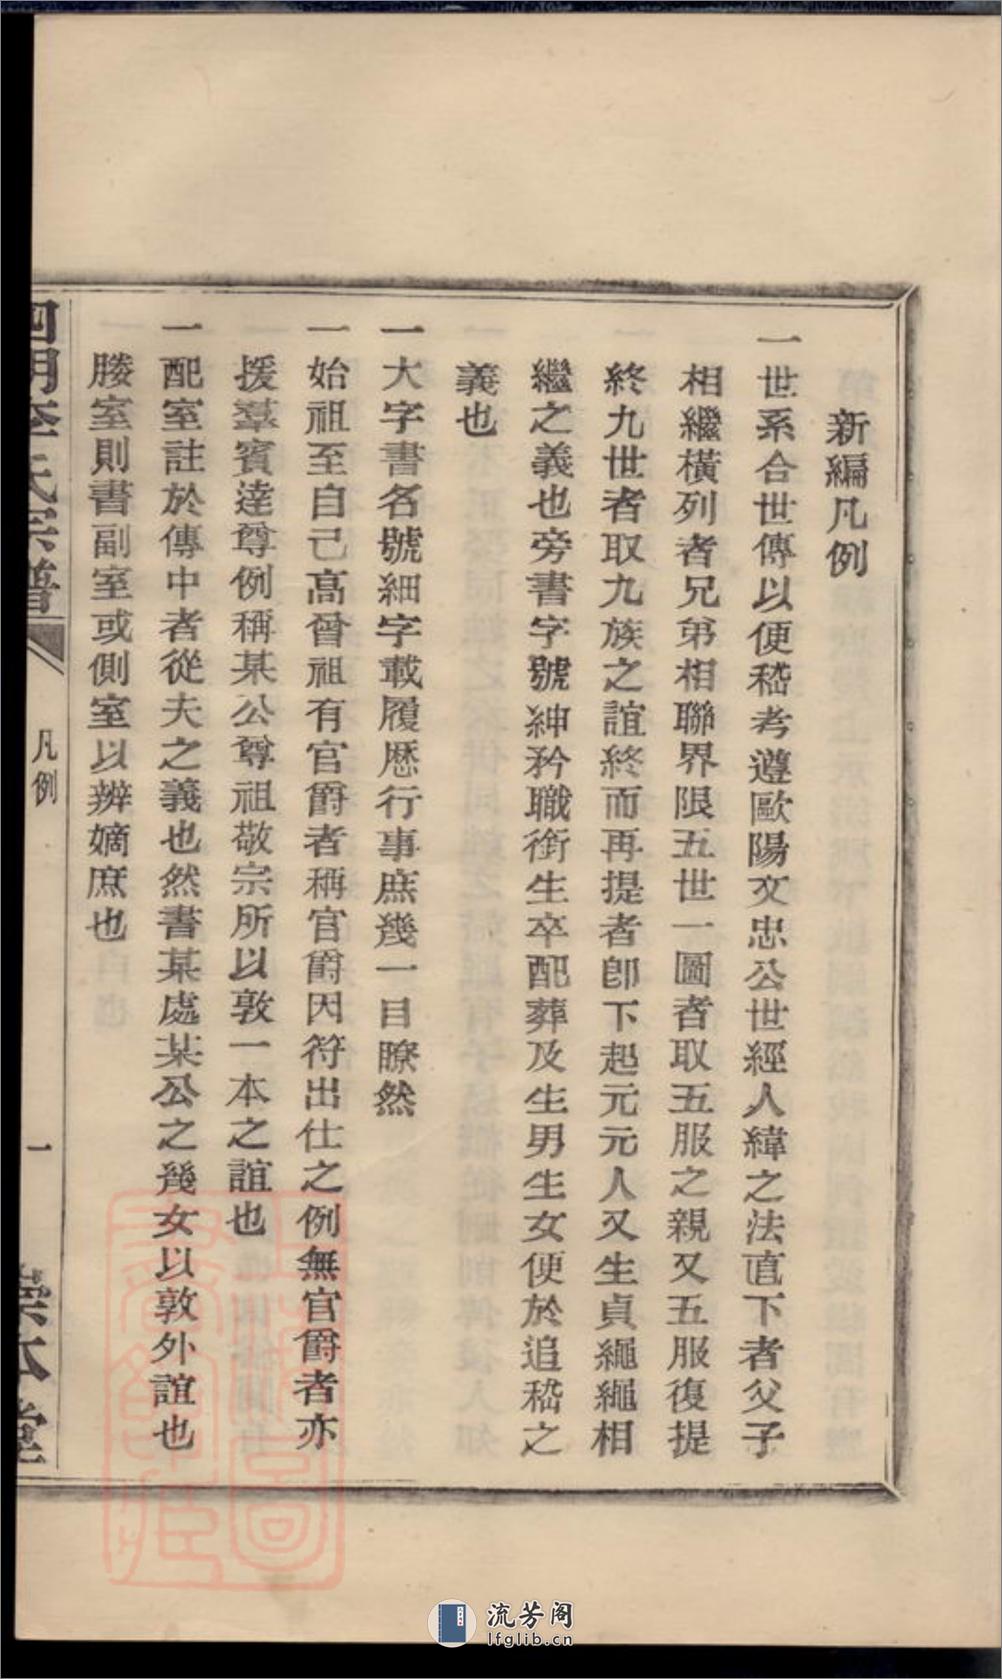 新編凡例
一世系合世傳以便嵇考遵歐陽文忠公世經人緯之法直下者父子
相繼橫列者兄弟相聯界限五世一圖者取五服之親又五服復提
終九世者取九族之誼終而再提者卽下起元元人又生貞繩繩相
繼之義也旁書字號紳矜職銜生卒配葬及生男生女便於追嵇之
義也
一大字書名號細字載履歷行事庶幾一目瞭然
一始祖至自己高曾祖有官爵者稱官爵因符出仕之例無官爵者亦
援羣賓逹尊例稱某公尊祖敬宗所以敦一本之誼也
一配室註於傳中者從夫之義也然書某處某公之幾女以敦外誼也
媵室則書副室或側室以辨嫡庶也
四明李氏宗譜
凡例
一
崇本堂
流芳阁
lfglib.cn